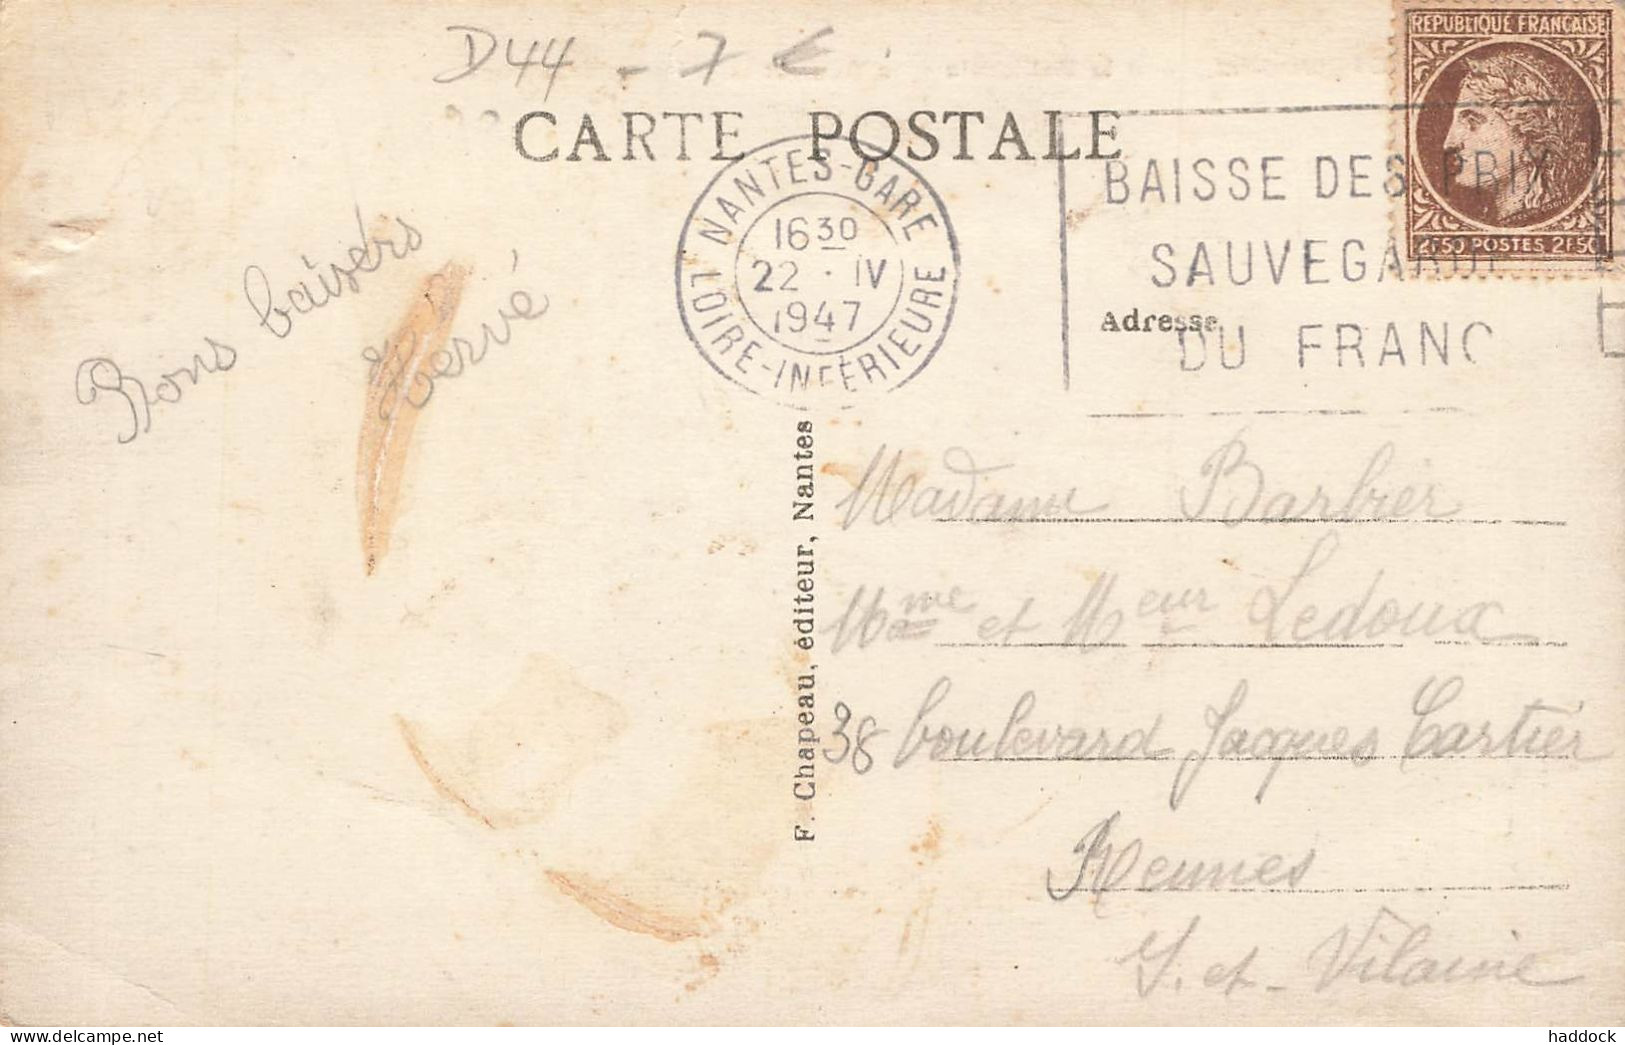 D44 - 7 €
CARTE POSTALE
REPUBLIQUE FRANÇAISE
2F50 POSTES 2F50
NANTES-GARE
16 30
22 · IV
1947
LOIRE-INFÉRIEURE
BAISSE DES PRIX
SAUVEGARDE
DU FRANC
Adresse
Bons baisers
Hervé
F. Chapeau, éditeur, Nantes
Madame Barbier
Mme et Meur Ledoux
38 boulevard Jacques Cartier
Rennes
I. et Vilaine
haddock